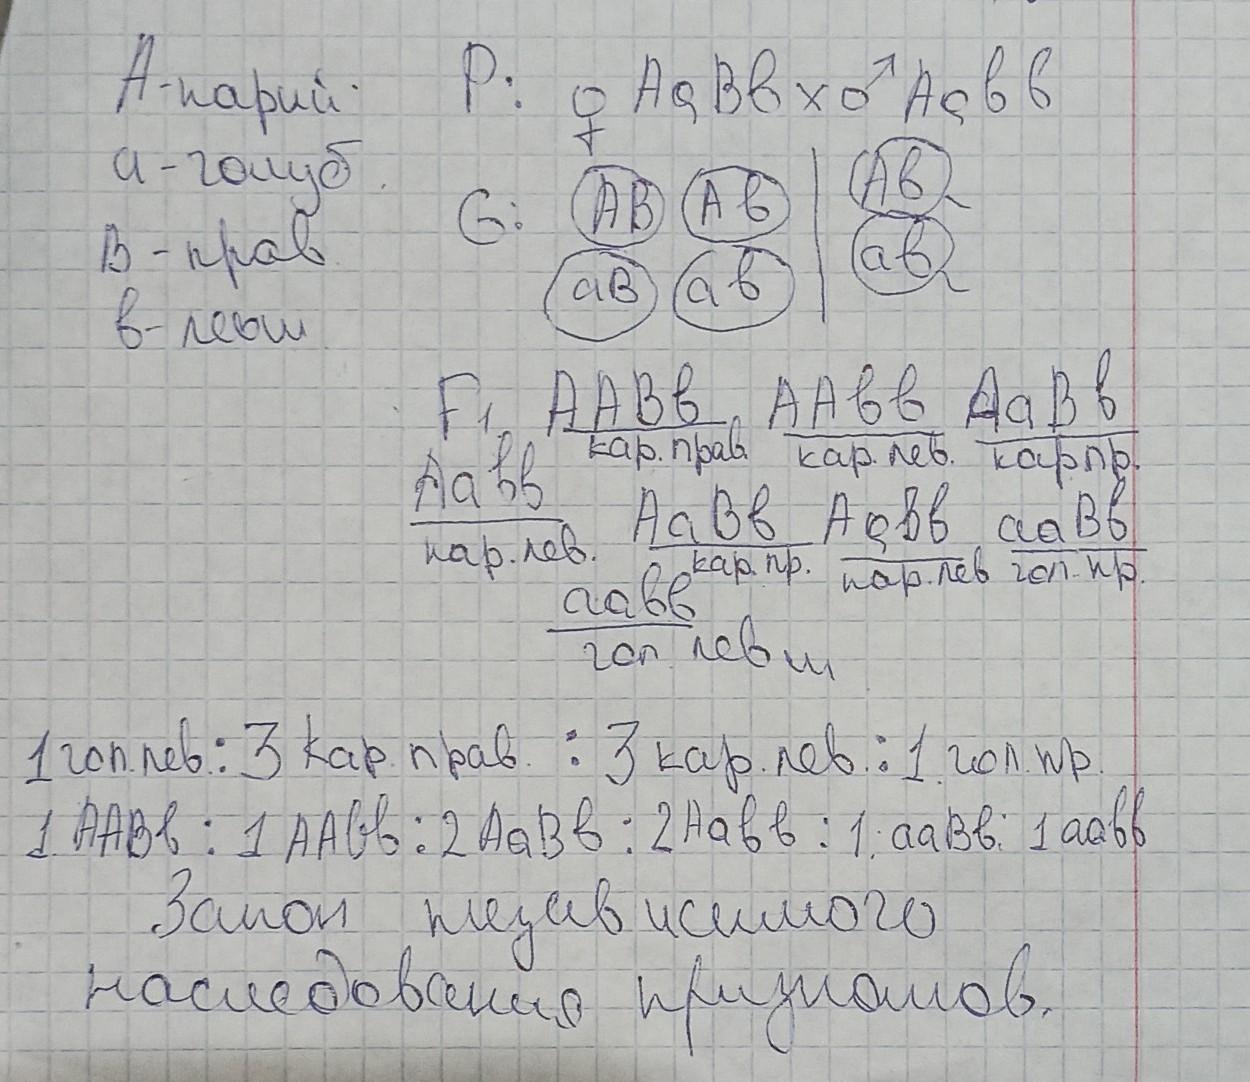 А-карий.
а-голуб.
В-прав.
в-левш
P: ♀ АаВв x ♂ Аавв
G: АВ Ав | Ав
аВ ав | ав
F1 ААВв ААвв АаВв
кар.прав. кар.лев. кар.пр.
Аавв АаВв Аавв ааВв
кар.лев. кар.пр. кар.лев гол.пр.
аавв
гол левш
1 гол.лев.: 3 кар.прав. : 3 кар.лев.: 1.гол.пр.
1.ААВв : 1 ААвв : 2 АаВв : 2 Аавв : 1. ааВв: 1 аавв
Закон независимого
наследования признаков.